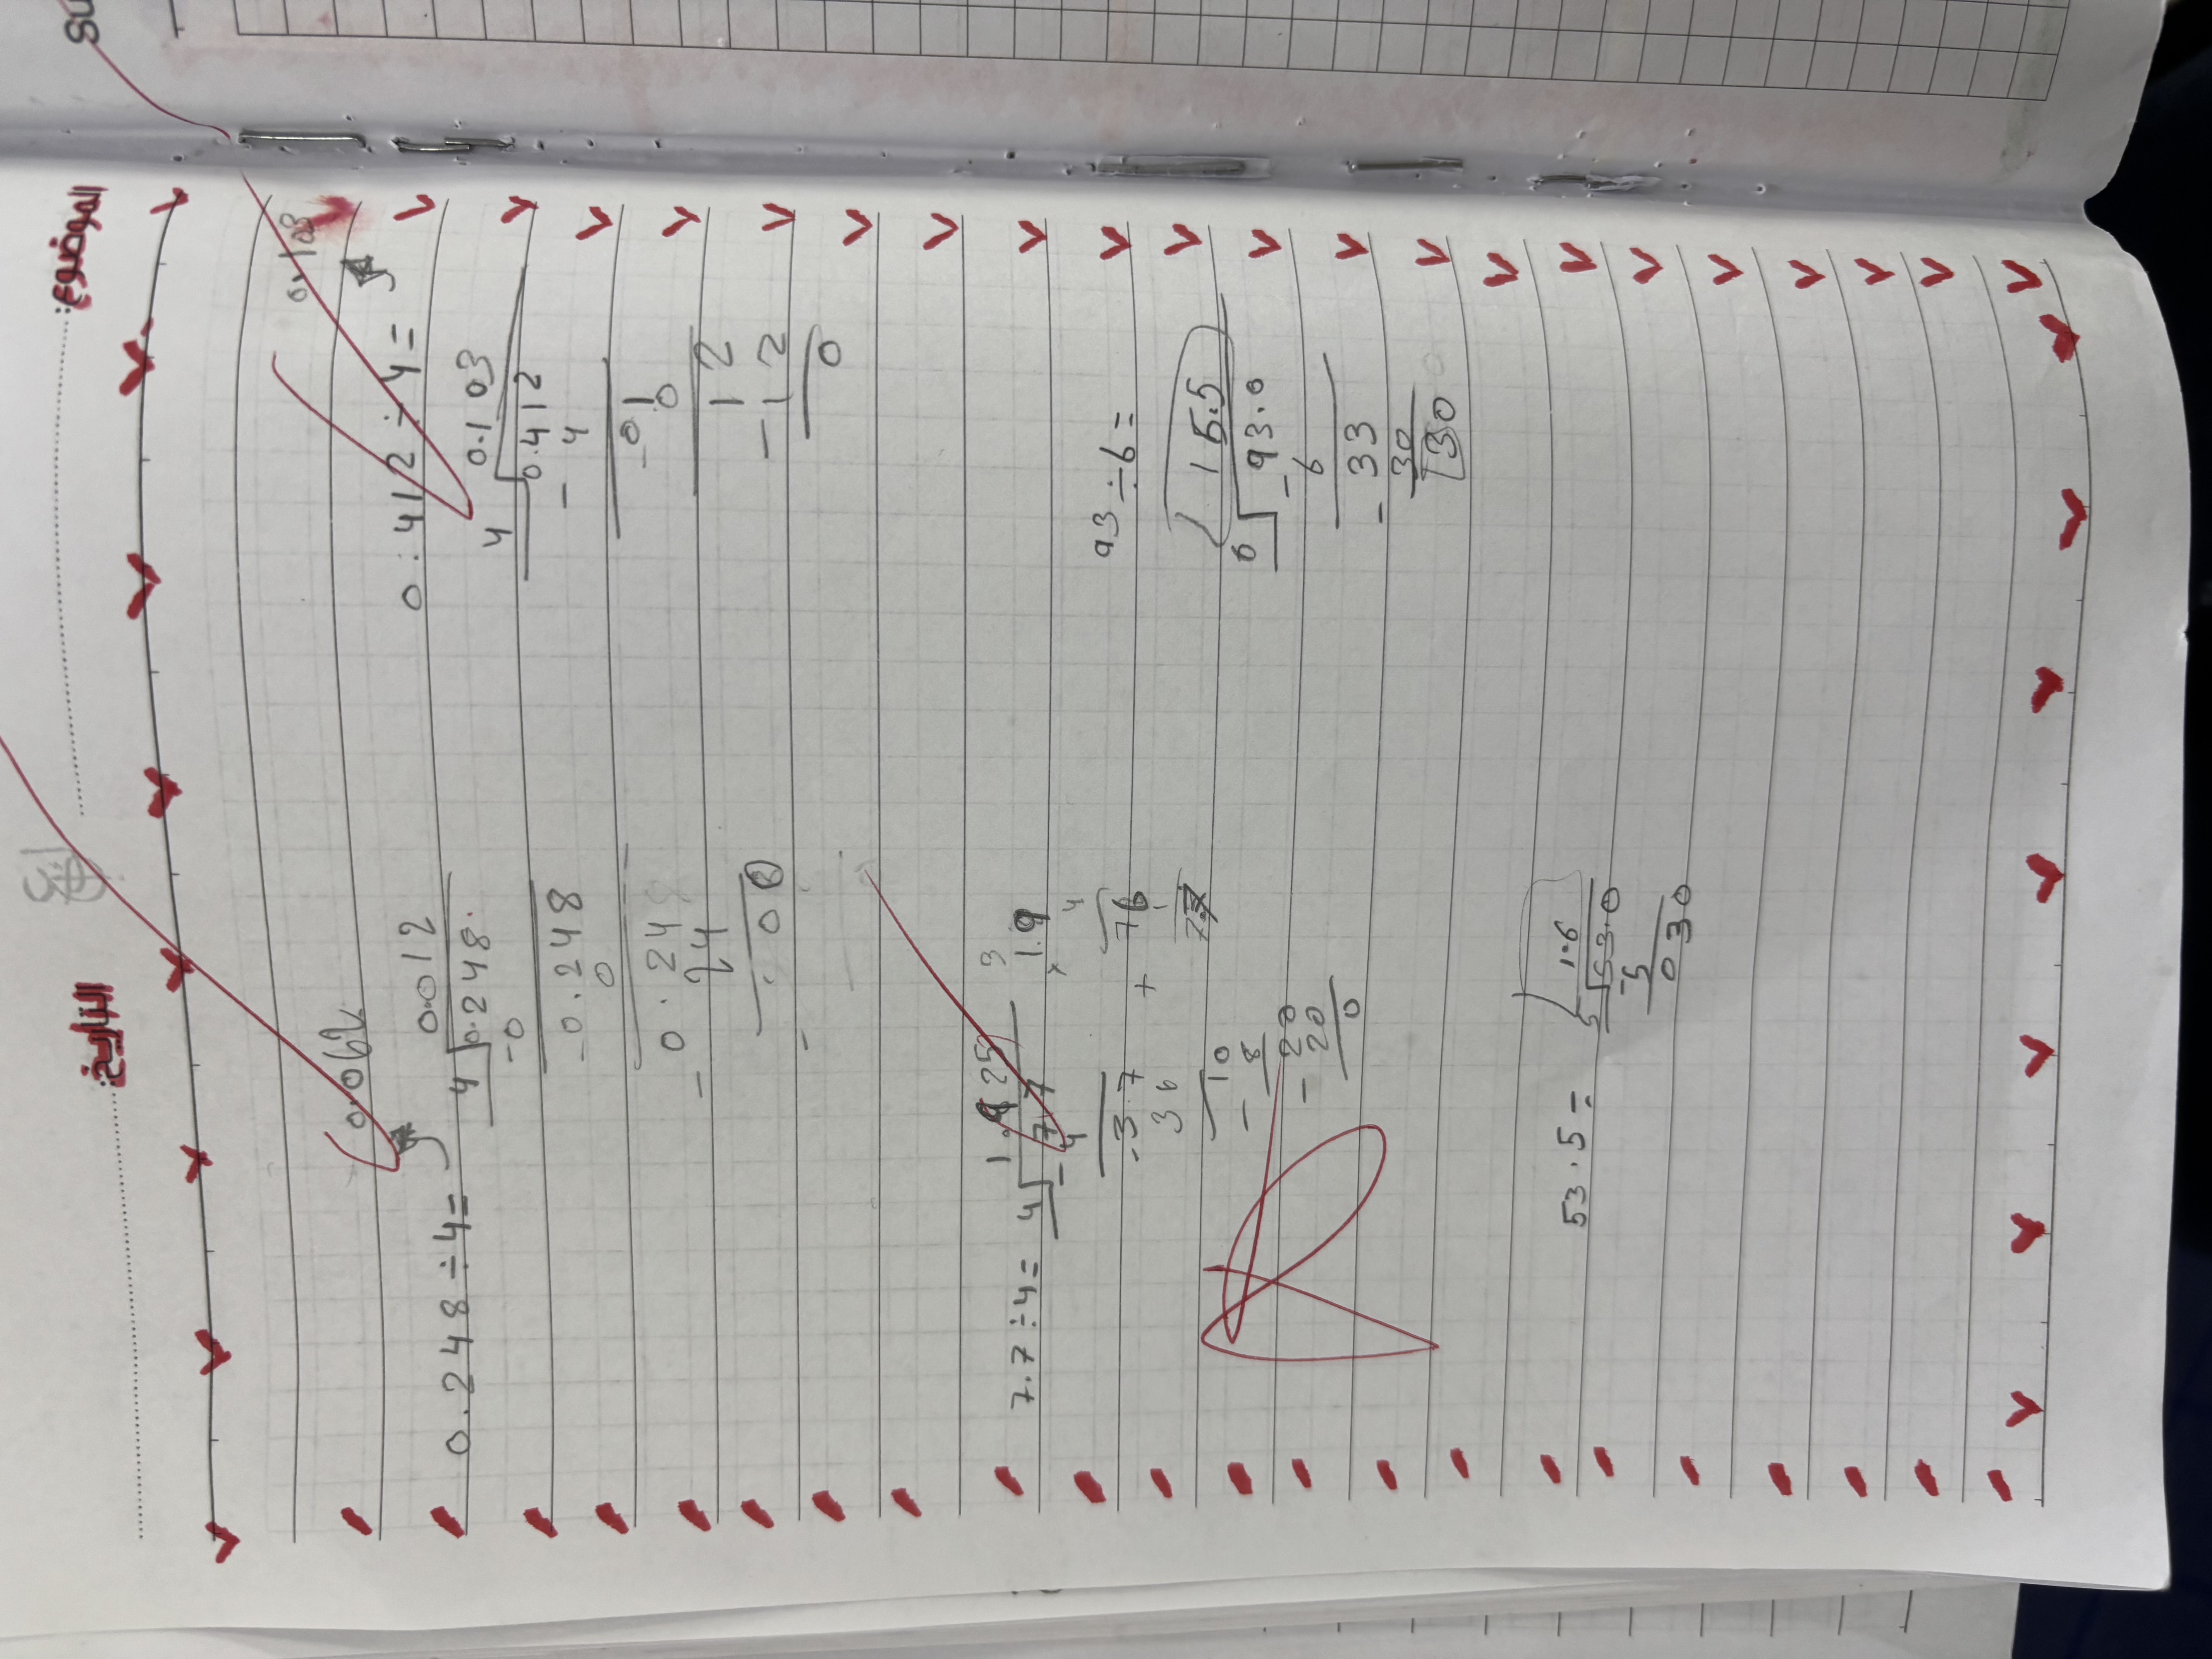 التاريخ:
الموضوع:
0.062
0.248÷4=
0.012
4
0.248.
-0
-0.248
0
-0.24
24
.08
0.103
0:412÷4=
0.103
4
0.412
-4
-01
0
12
-12
0
7.7÷4=
1.925
4
7.7
-4
-3.7
36
10
-8
-20
20
0
3
1.9
×4
76
+
7.7
93÷6=
15.5
6
93.0
-6
-33
30
30
53.5=
1.6
5
53.0
-5
030